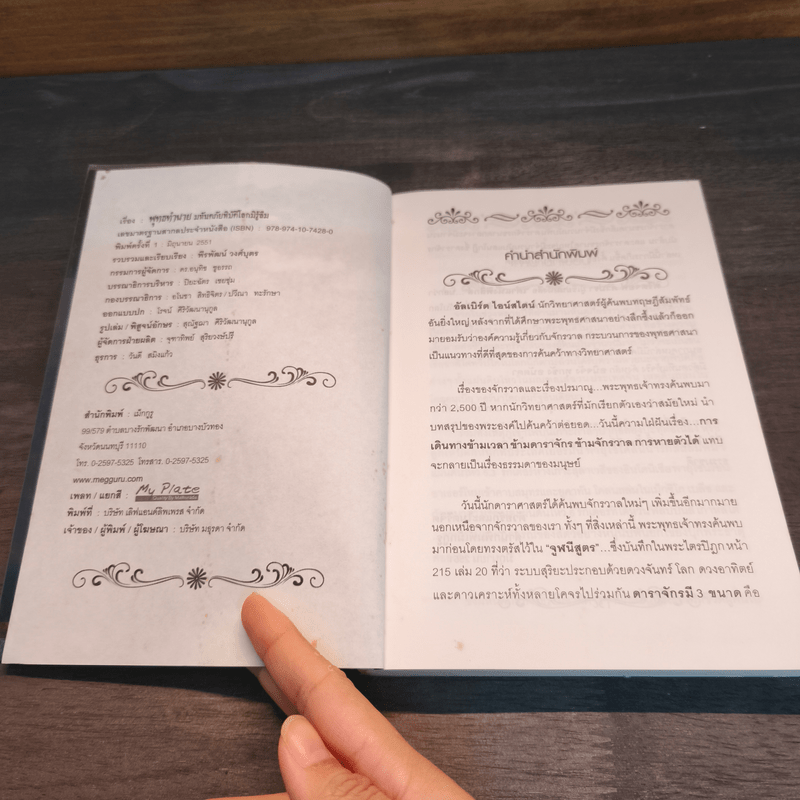 เรื่อง : พุทธทำนาย มหันตภัยพิบัติโลกมิรู้ลืม
เลขมาตรฐานสากลประจำหนังสือ (ISBN) : 978-974-10-7428-0
พิมพ์ครั้งที่ 1 : มิถุนายน 2551
รวบรวมและเรียบเรียง : พีรพัฒน์ วงศ์บุตร
กรรมการผู้จัดการ : ดร.อนุทิช ชูอรรถ
บรรณาธิการบริหาร : ปิยะฉัตร เชยชุ่ม
กองบรรณาธิการ : อโนชา สิทธิจิตร / ปวีณา ทะรักษา
ออกแบบปก : โรจน์ ศิริวัฒนานุกูล
รูปเล่ม / พิสูจน์อักษร : สุณัฐฌา ศิริวัฒนานุกูล
ผู้จัดการฝ่ายผลิต : จุฑาทิพย์ สุริยวงษ์ปรี
ธุรการ : วันดี ตมิงแก้ว
สำนักพิมพ์ : เม้กกูรู
99/579 ตำบลบางรักพัฒนา อำเภอบางบัวทอง
จังหวัดนนทบุรี 11110
โทร. 0-2597-5325 โทรสาร. 0-2597-5325
www.megguru.com
เพลท / แยกสี : My Plate
พิมพ์ที่ : บริษัท เอิฟแอนด์ลิพเพรส จำกัด
เจ้าของ / ผู้พิมพ์ / ผู้โฆษณา : บริษัท มธุรดา จำกัด
คำนำสำนักพิมพ์
อัลเบิร์ต ไอน์สไตน์ นักวิทยาศาสตร์ผู้ค้นพบทฤษฎีสัมพัทธ์
อันยิ่งใหญ่ หลังจากที่ได้ศึกษาพระพุทธศาสนาอย่างลึกซึ้งแล้วก็ออก
มายอมรับว่าองค์ความรู้เกี่ยวกับจักรวาล กระบวนการของพุทธศาสนา
เป็นแนวทางที่ดีที่สุดของการค้นคว้าทางวิทยาศาสตร์
เรื่องของจักรวาลและเรื่องปรมาณู...พระพุทธเจ้าทรงค้นพบมา
กว่า 2,500 ปี หากนักวิทยาศาสตร์ที่มักเรียกตัวเองว่าสมัยใหม่ นำ
บทสรุปของพระองค์ไปค้นคว้าต่อยอด...วันนี้ความใฝ่ฝันเรื่อง...การ
เดินทางข้ามเวลา ข้ามดาราจักร ข้ามจักรวาล การหายตัวได้ แทบ
จะกลายเป็นเรื่องธรรมดาของมนุษย์
วันนี้นักดาราศาสตร์ได้ค้นพบจักรวาลใหม่ๆ เพิ่มขึ้นอีกมากมาย
นอกเหนือจากจักรวาลของเรา ทั้งๆ ที่สิ่งเหล่านี้ พระพุทธเจ้าทรงค้นพบ
มาก่อนโดยทรงตรัสไว้ใน "จูฬนีสูตร"...ซึ่งบันทึกในพระไตรปิฎก หน้า
215 เล่ม 20 ที่ว่า ระบบสุริยะประกอบด้วยดวงจันทร์ โลก ดวงอาทิตย์
และดาวเคราะห์ทั้งหลายโคจรไปร่วมกัน ดาราจักรมี 3 ขนาด คือ